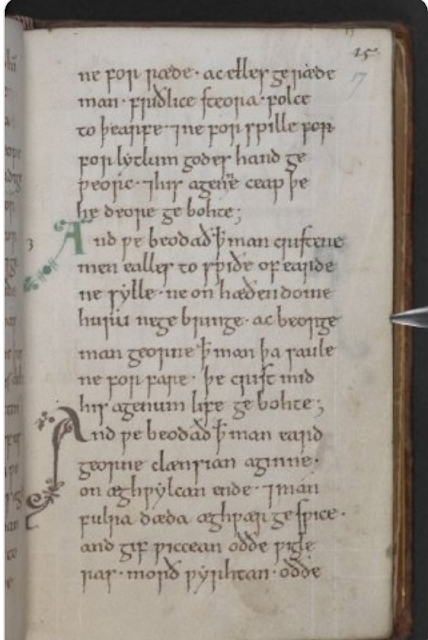 15
17
ne for ræde · ac elles geræde
man · friðlice steora · folce
to þearfe · ⁊ne for spille for
for lytlum godes hand ge
ƿeorc · ⁊his agenne ceap þe
he deore ge bohte;
3
And ƿe beodað ꝥ man cristene
men ealles to sƿiðe of earde
ne sylle · ne on hæðendome
huru nege bringe · ac beorge
man georne ꝥ man þa saule
ne for fare · þe crist mid
his agenum life ge bohte;
And ƿe beodað ꝥ man eard
georne clænsian aginne ·
on æghƿylcan ende · ⁊ man
fulra dæda æghƿær ge sƿice ·
and gif ƿiccean oððe ƿigle
ras · morð ƿyrhtan · oððe